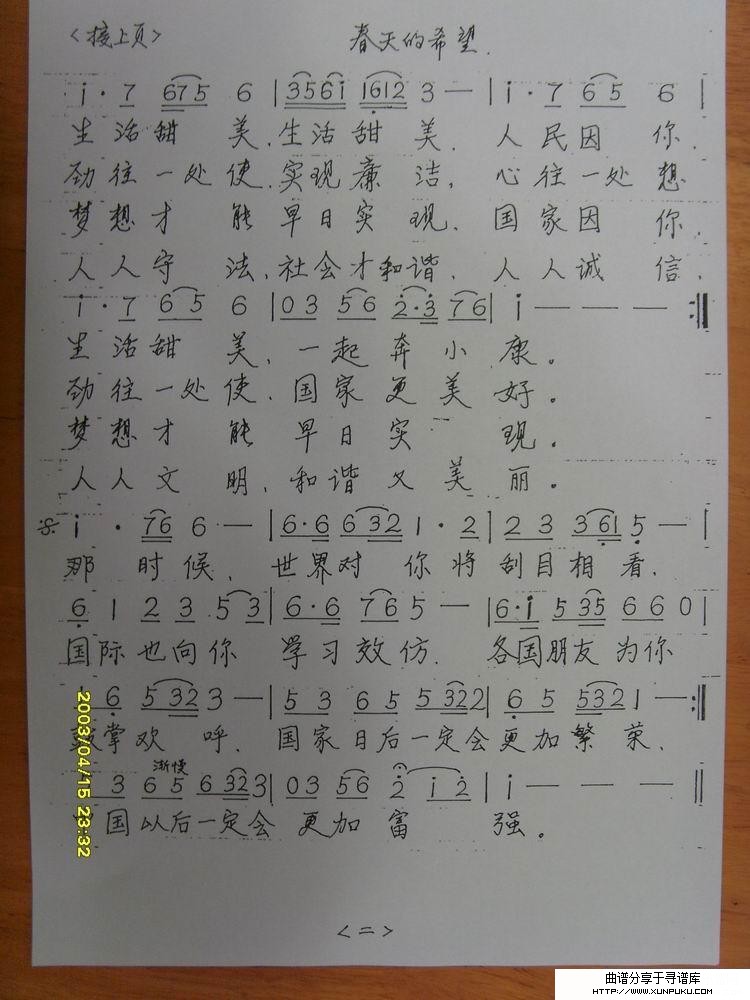 <接上页> 春天的希望.
i·7 675 6 | 3561 1612 3 — | i·7 65 6 |
生活甜 美.生活甜 美. 人民因 你.
劲往一处使.实现廉 洁, 心往一处想
梦想才 能早日实 现. 国家因 你,
人人守 法,社会才和谐. 人人诚 信,
i·7 65 6 | 03 56 2·3 76 | i — — — :||
生活甜 美, 一起奔小康。
劲往一处使. 国家更美好。
梦想才 能 早日实 现。
人人文 明, 和谐又美丽。
i · 76 6 — | 6·6 632 1·2 | 2 3 361 5 — |
那 时候, 世界对 你将刮目相看,
6 1 2 3 5 3 | 6·6 765 — | 6·i 535 660 |
国际也向你 学习效仿. 各国朋友为你
6 5323 — | 53 65 5322 | 65 5321 — :||
掌欢 呼. 国家日后一定会更加繁荣,
渐慢
3 65 6323 | 03 56 2 i 2 | i — — — ||
国以后一定会 更加富 强。
<二>
2003/04/15 23:32
曲谱分享于寻谱库
HTTP://WWW.XUNPUKU.COM